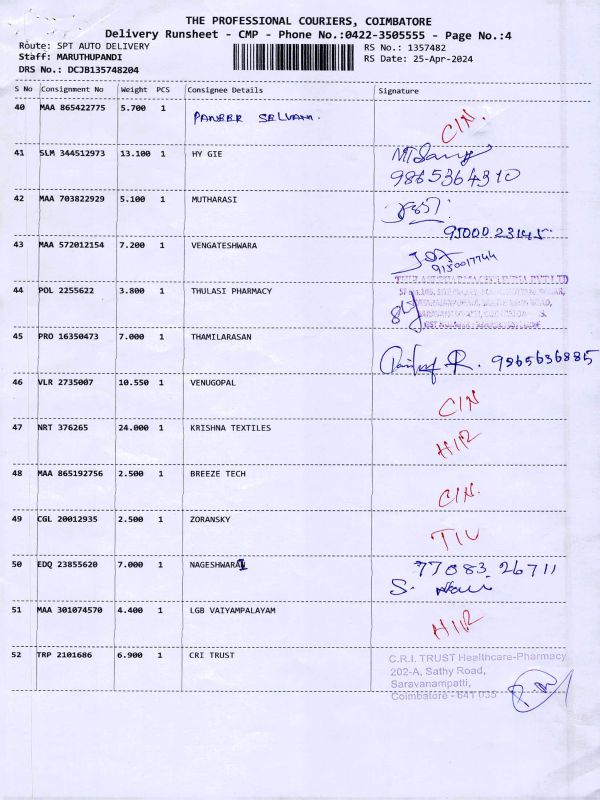 THE PROFESSIONAL COURIERS, COIMBATORE
Delivery Runsheet - CMP - Phone No.:0422-3505555 - Page No.:4
Route: SPT AUTO DELIVERY RS No.: 1357482
Staff: MARUTHUPANDI RS Date: 25-Apr-2024
DRS No.: DCJB135748204
S No Consignment No Weight PCS Consignee Details Signature
40 MAA 865422775 5.700 1 PANEER SELVAM. CIN.
41 SLM 344512973 13.100 1 HY GIE
9865364310
42 MAA 703822929 5.100 1 MUTHARASI
9500023145
43 MAA 572012154 7.200 1 VENGATESHWARA
9150017744
44 POL 2255622 3.800 1 THULASI PHARMACY
45 PRO 16350473 7.000 1 THAMILARASAN
9965636885
46 VLR 2735007 10.550 1 VENUGOPAL CIN
47 NRT 376265 24.000 1 KRISHNA TEXTILES HIR
48 MAA 865192756 2.500 1 BREEZE TECH CIN.
49 CGL 20012935 2.500 1 ZORANSKY TIU
50 EDQ 23855620 7.000 1 NAGESHWARA 77083 26711
51 MAA 301074570 4.400 1 LGB VAIYAMPALAYAM HIR
52 TRP 2101686 6.900 1 CRI TRUST C.R.I. TRUST Healthcare-Pharmacy
202-A, Sathy Road,
Saravanampatti,
Coimbatore - 641 035